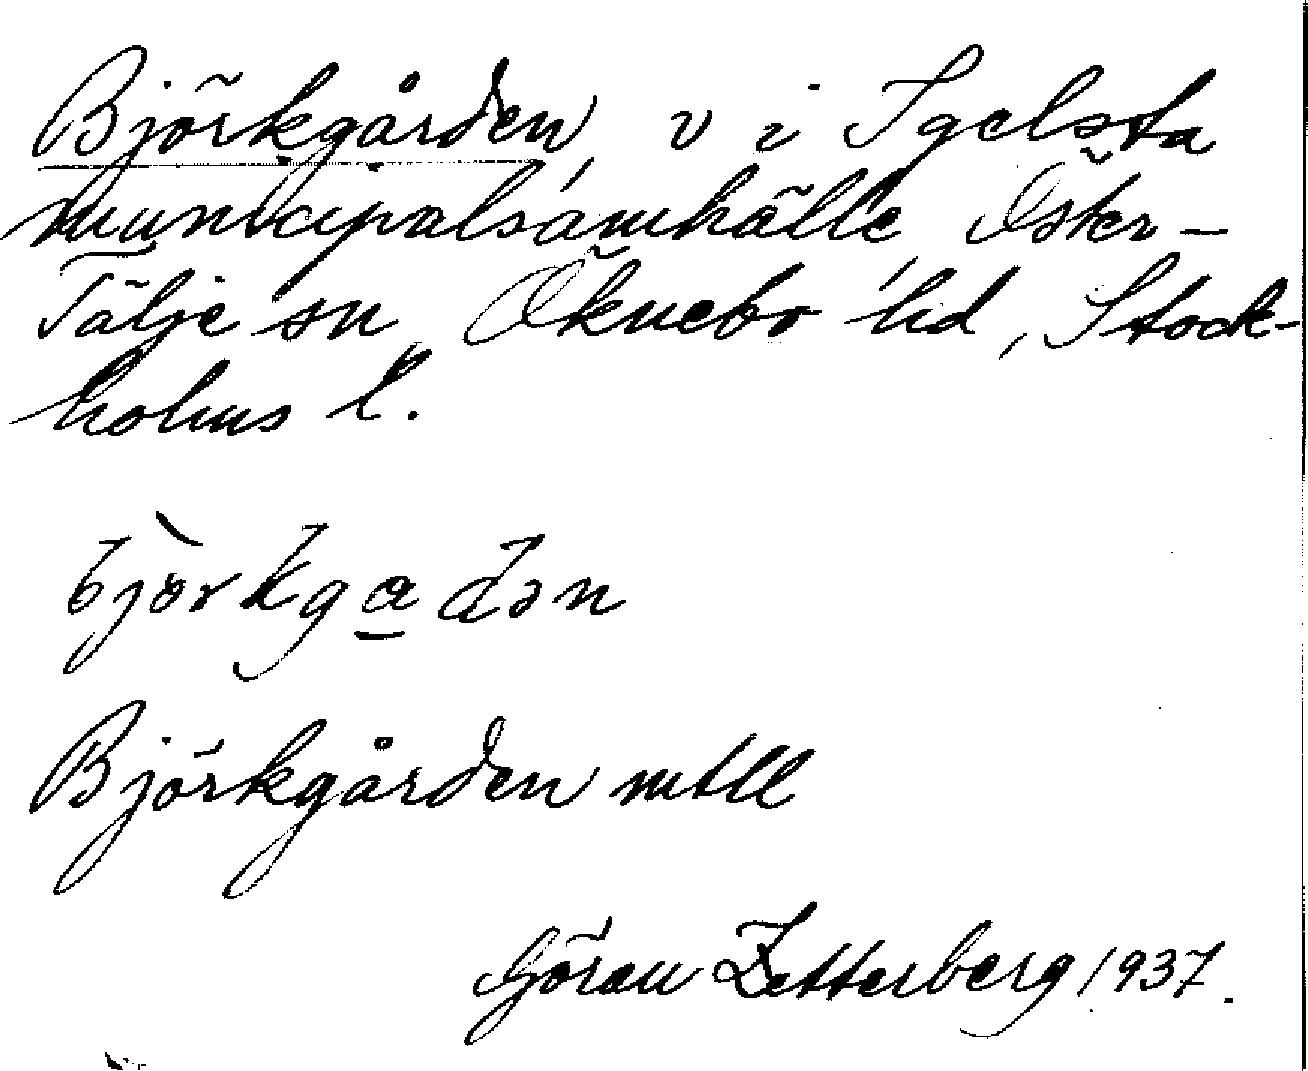 Björkgården, v i Igelsta
municipalsamhälle Öster-
Tälje sn, Öknebo hd, Stock-
holms l.
bjòrkga̲dən
Björkgården mtll
Göran Zetterberg 1937.